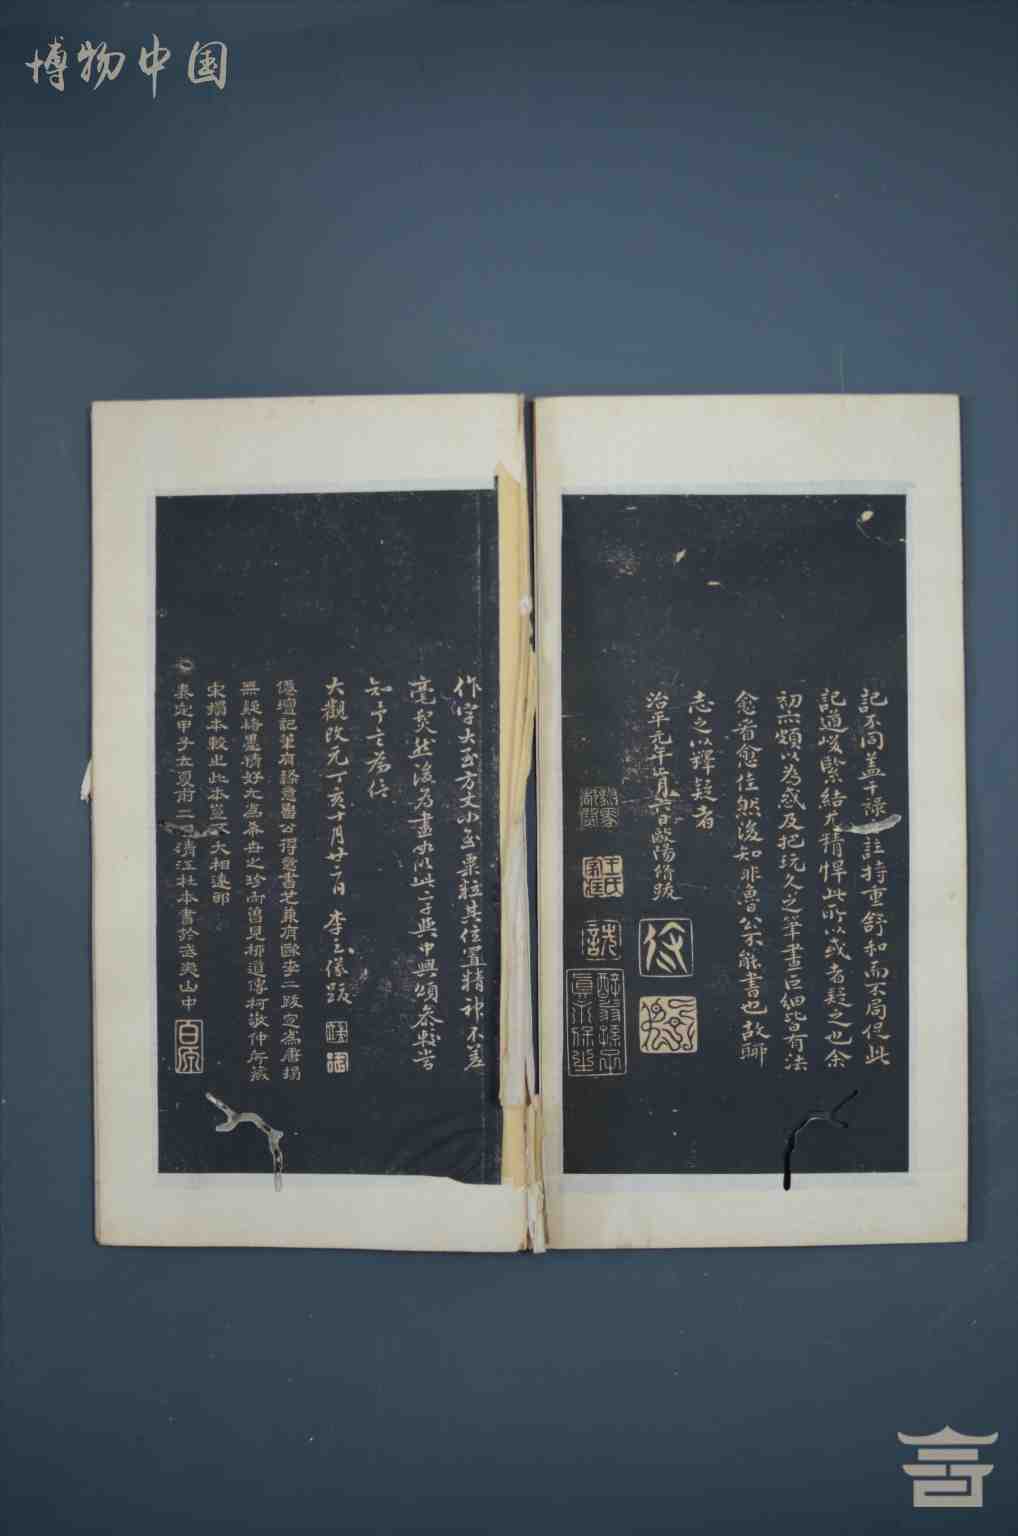 博物中国
記不同蓋干祿之註持重舒和而不局促此
記遒峻緊結尤精悍此所以或者疑之也余
初亦頗以為惑及把玩久之筆畫巨細皆有法
愈看愈佳然後知非魯公不能書也故聊
志之以釋疑者
治平元年二月六日歐陽脩跋
王氏家
許
作字大至方丈小至粟粒其位置精神不差
毫髮然後為盡如以此字與中興頌參較當
知予言為信
大觀改元丁亥十月廿一日李之儀跋
僊壇記筆有隸意魯公得意書之兼有歐李二跋定為唐搨
無疑時墨情好尤為希世之珍向舊見柳道傳柯敬仲所藏
宋搨本較此此本豈不大相遠耶
泰定甲子大夏前二日清江杜本書於武夷山中